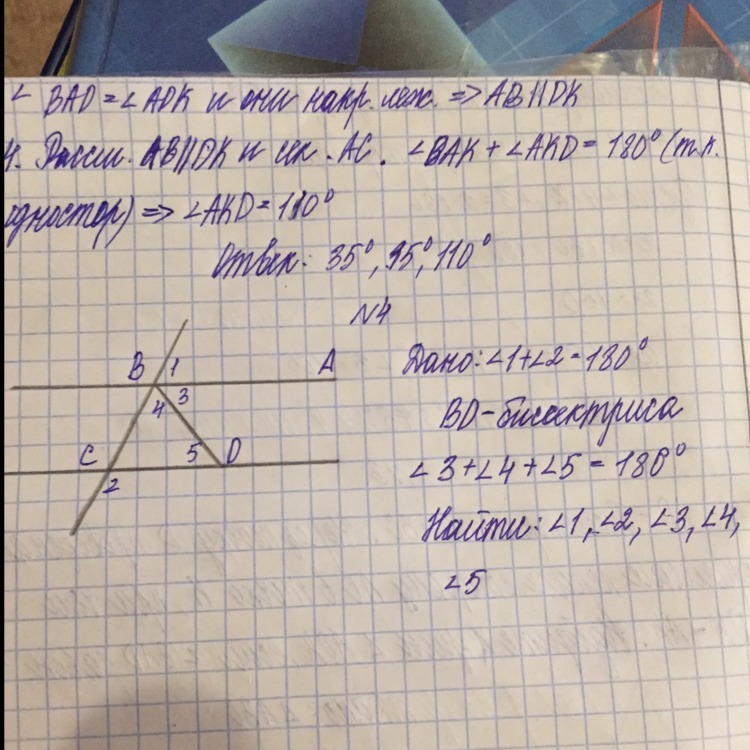 ∠ BAD = ∠ADK и они накр. леж. => AB||DK
4. Рассм. AB||DK и сек. AC. ∠BAK + ∠AKD = 180° (т.к.
одностор) => ∠AKD = 110°
Ответ: 35°, 35°, 110°
N4
B 1 A
4 3
C 5 D
2
Дано: ∠1+∠2=180°
BD-биссектриса
∠3+∠4+∠5=180°
Найти: ∠1, ∠2, ∠3, ∠4,
∠5